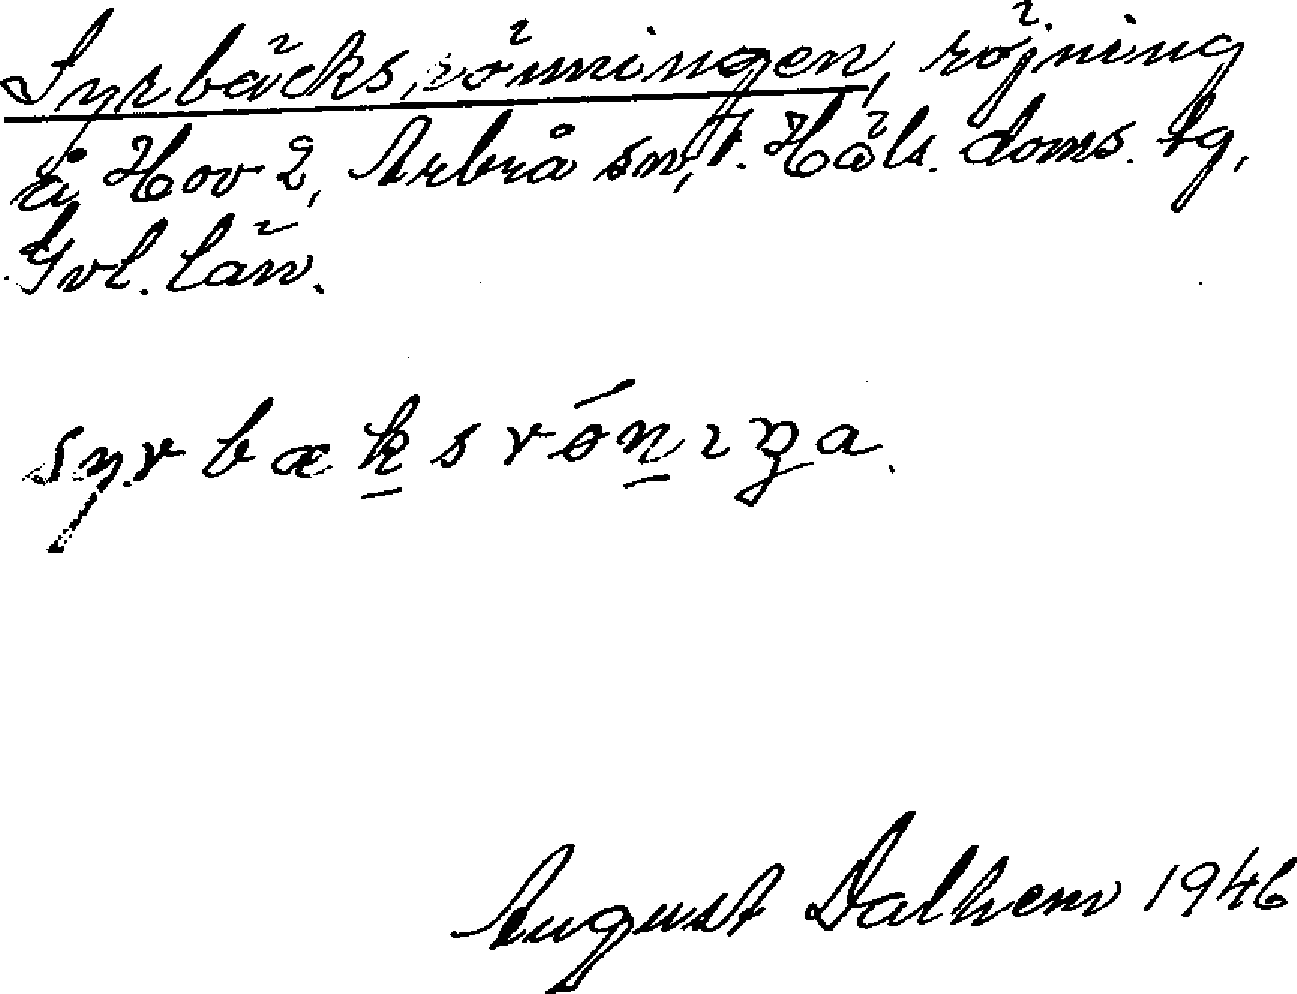 Syrbäcks,rönningen, röjning
å Hov 2, Arbrå sn, V. Häls. doms. tg,
Gvl. län.
syrbæksrónıŋa.
August Dalhem 1946